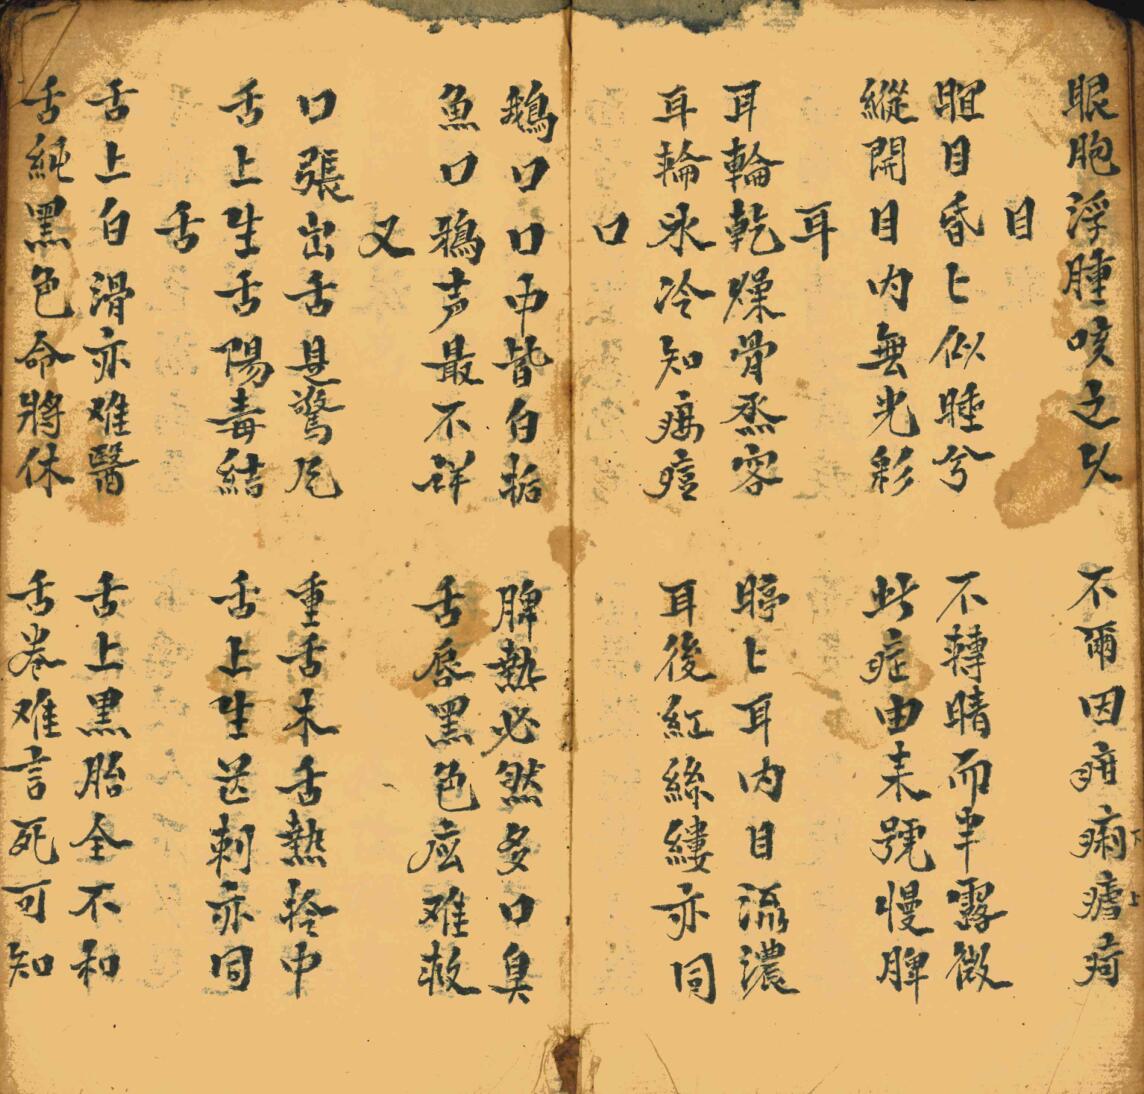 眼胞浮腫咳之以　不爾因疳痢瘧疴
目
䀏目昏匕似睡兮　不轉睛而半露微
縱開目内無光彩　此症由来號慢脾
耳
耳輪乾燥骨烝容　聤匕耳内目流濃
耳輪氷冷知痲痘　耳後紅絲縷亦同
口
鵝口口中皆白垢　脾熱必然多口臭
魚口鴉声最不詳　舌唇黑色症难救
又
口張出舌見驚厄　重舌木舌熱於中
舌上生舌陽毒結　舌上生芒刺亦同
舌
舌上白滑亦难醫　舌上黒胎全不和
舌純黑色命將休　舌卷难言死可知